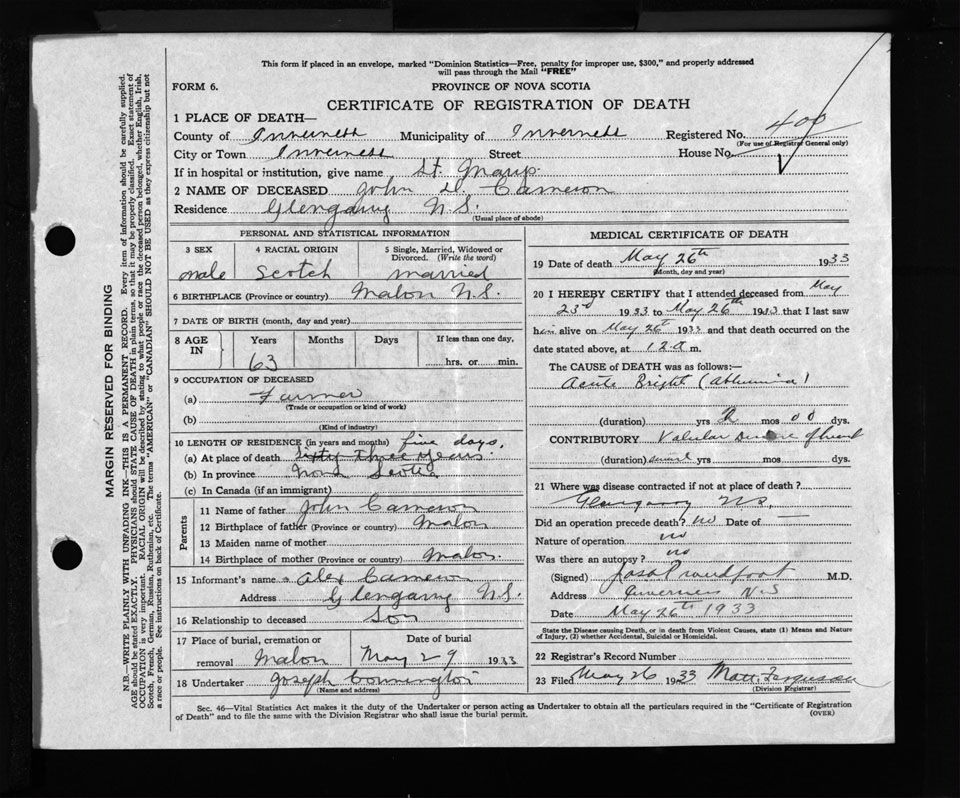 This form if placed in an envelope, marked "Dominion Statistics—Free, penalty for improper use, $300," and properly addressed
will pass through the Mail "FREE"
FORM 6.
PROVINCE OF NOVA SCOTIA
CERTIFICATE OF REGISTRATION OF DEATH
1 PLACE OF DEATH—
County of Inverness Municipality of Inverness Registered No. 400
(For use of Registrar General only)
City or Town Inverness Street House No.
If in hospital or institution, give name St. Marys.
2 NAME OF DECEASED John D. Cameron
Residence Glengarry N.S.
(Usual place of abode)
PERSONAL AND STATISTICAL INFORMATION
3 SEX 4 RACIAL ORIGIN 5 Single, Married, Widowed or
Divorced. (Write the word)
male Scotch married
6 BIRTHPLACE (Province or country) Mabou N.S.
7 DATE OF BIRTH (month, day and year)
8 AGE
IN Years Months Days If less than one day,
63 hrs. or min.
9 OCCUPATION OF DECEASED
(a) Farmer
(Trade or occupation or kind of work)
(b)
(Kind of industry)
10 LENGTH OF RESIDENCE (in years and months) five days.
(a) At place of death sixty three years
(b) In province Nova Scotia
(c) In Canada (if an immigrant)
Parents
11 Name of father John Cameron
12 Birthplace of father (Province or country) Mabou
13 Maiden name of mother
14 Birthplace of mother (Province or country) Mabou.
15 Informant's name Alex Cameron
Address Glengarry N.S.
16 Relationship to deceased Son
17 Place of burial, cremation or Date of burial
removal Mabou May 29 1933
18 Undertaker Joseph
(Name and address)
MEDICAL CERTIFICATE OF DEATH
19 Date of death May 26th 1933
(Month, day and year)
20 I HEREBY CERTIFY that I attended deceased from May
23rd 1933 to May 26th 1933 that I last saw
him alive on May 26th 1933 and that death occurred on
date stated above, at 12 a m.
The CAUSE of DEATH was as follows:—
Acute Bright
(duration) yrs mos dys.
CONTRIBUTORY Valvular of heart
(duration) yrs mos. dys.
21 Where was disease contracted if not at place of death?
Glengarry N.S.
Did an operation precede death? no Date of —
Nature of operation no
Was there an autopsy? no
(Signed) Jas A Proudfoot M.D.
Address Inverness N.S
Date May 26th 1933
State the Disease causing Death, or in death from Violent Causes, state (1) Means and Nature
of Injury, (2) whether Accidental, Suicidal or Homicidal.
22 Registrar's Record Number
23 Filed May 26 1933 Matt. Ferguson
(Division Registrar)
Sec. 46—Vital Statistics Act makes it the duty of the Undertaker or person acting as Undertaker to obtain all the particulars required in the "Certificate of Registration
of Death" and to file the same with the Division Registrar who shall issue the burial permit.
(OVER)
MARGIN RESERVED FOR BINDING
N.B.—WRITE PLAINLY WITH UNFADING INK—THIS IS A PERMANENT RECORD. Every item of information should be carefully supplied.
AGE should be stated EXACTLY. PHYSICIANS should STATE CAUSE OF DEATH in plain terms, so that it may be properly classified. Exact statement of
OCCUPATION is very important. RACIAL ORIGIN will be described by stating to what people or race the deceased person belonged, whether English, Irish,
Scotch, French, German, Russian, Ruthenian, etc. The terms "AMERICAN" or "CANADIAN" SHOULD NOT BE USED as they express citizenship but not
a race or people. See instructions on back of Certificate.